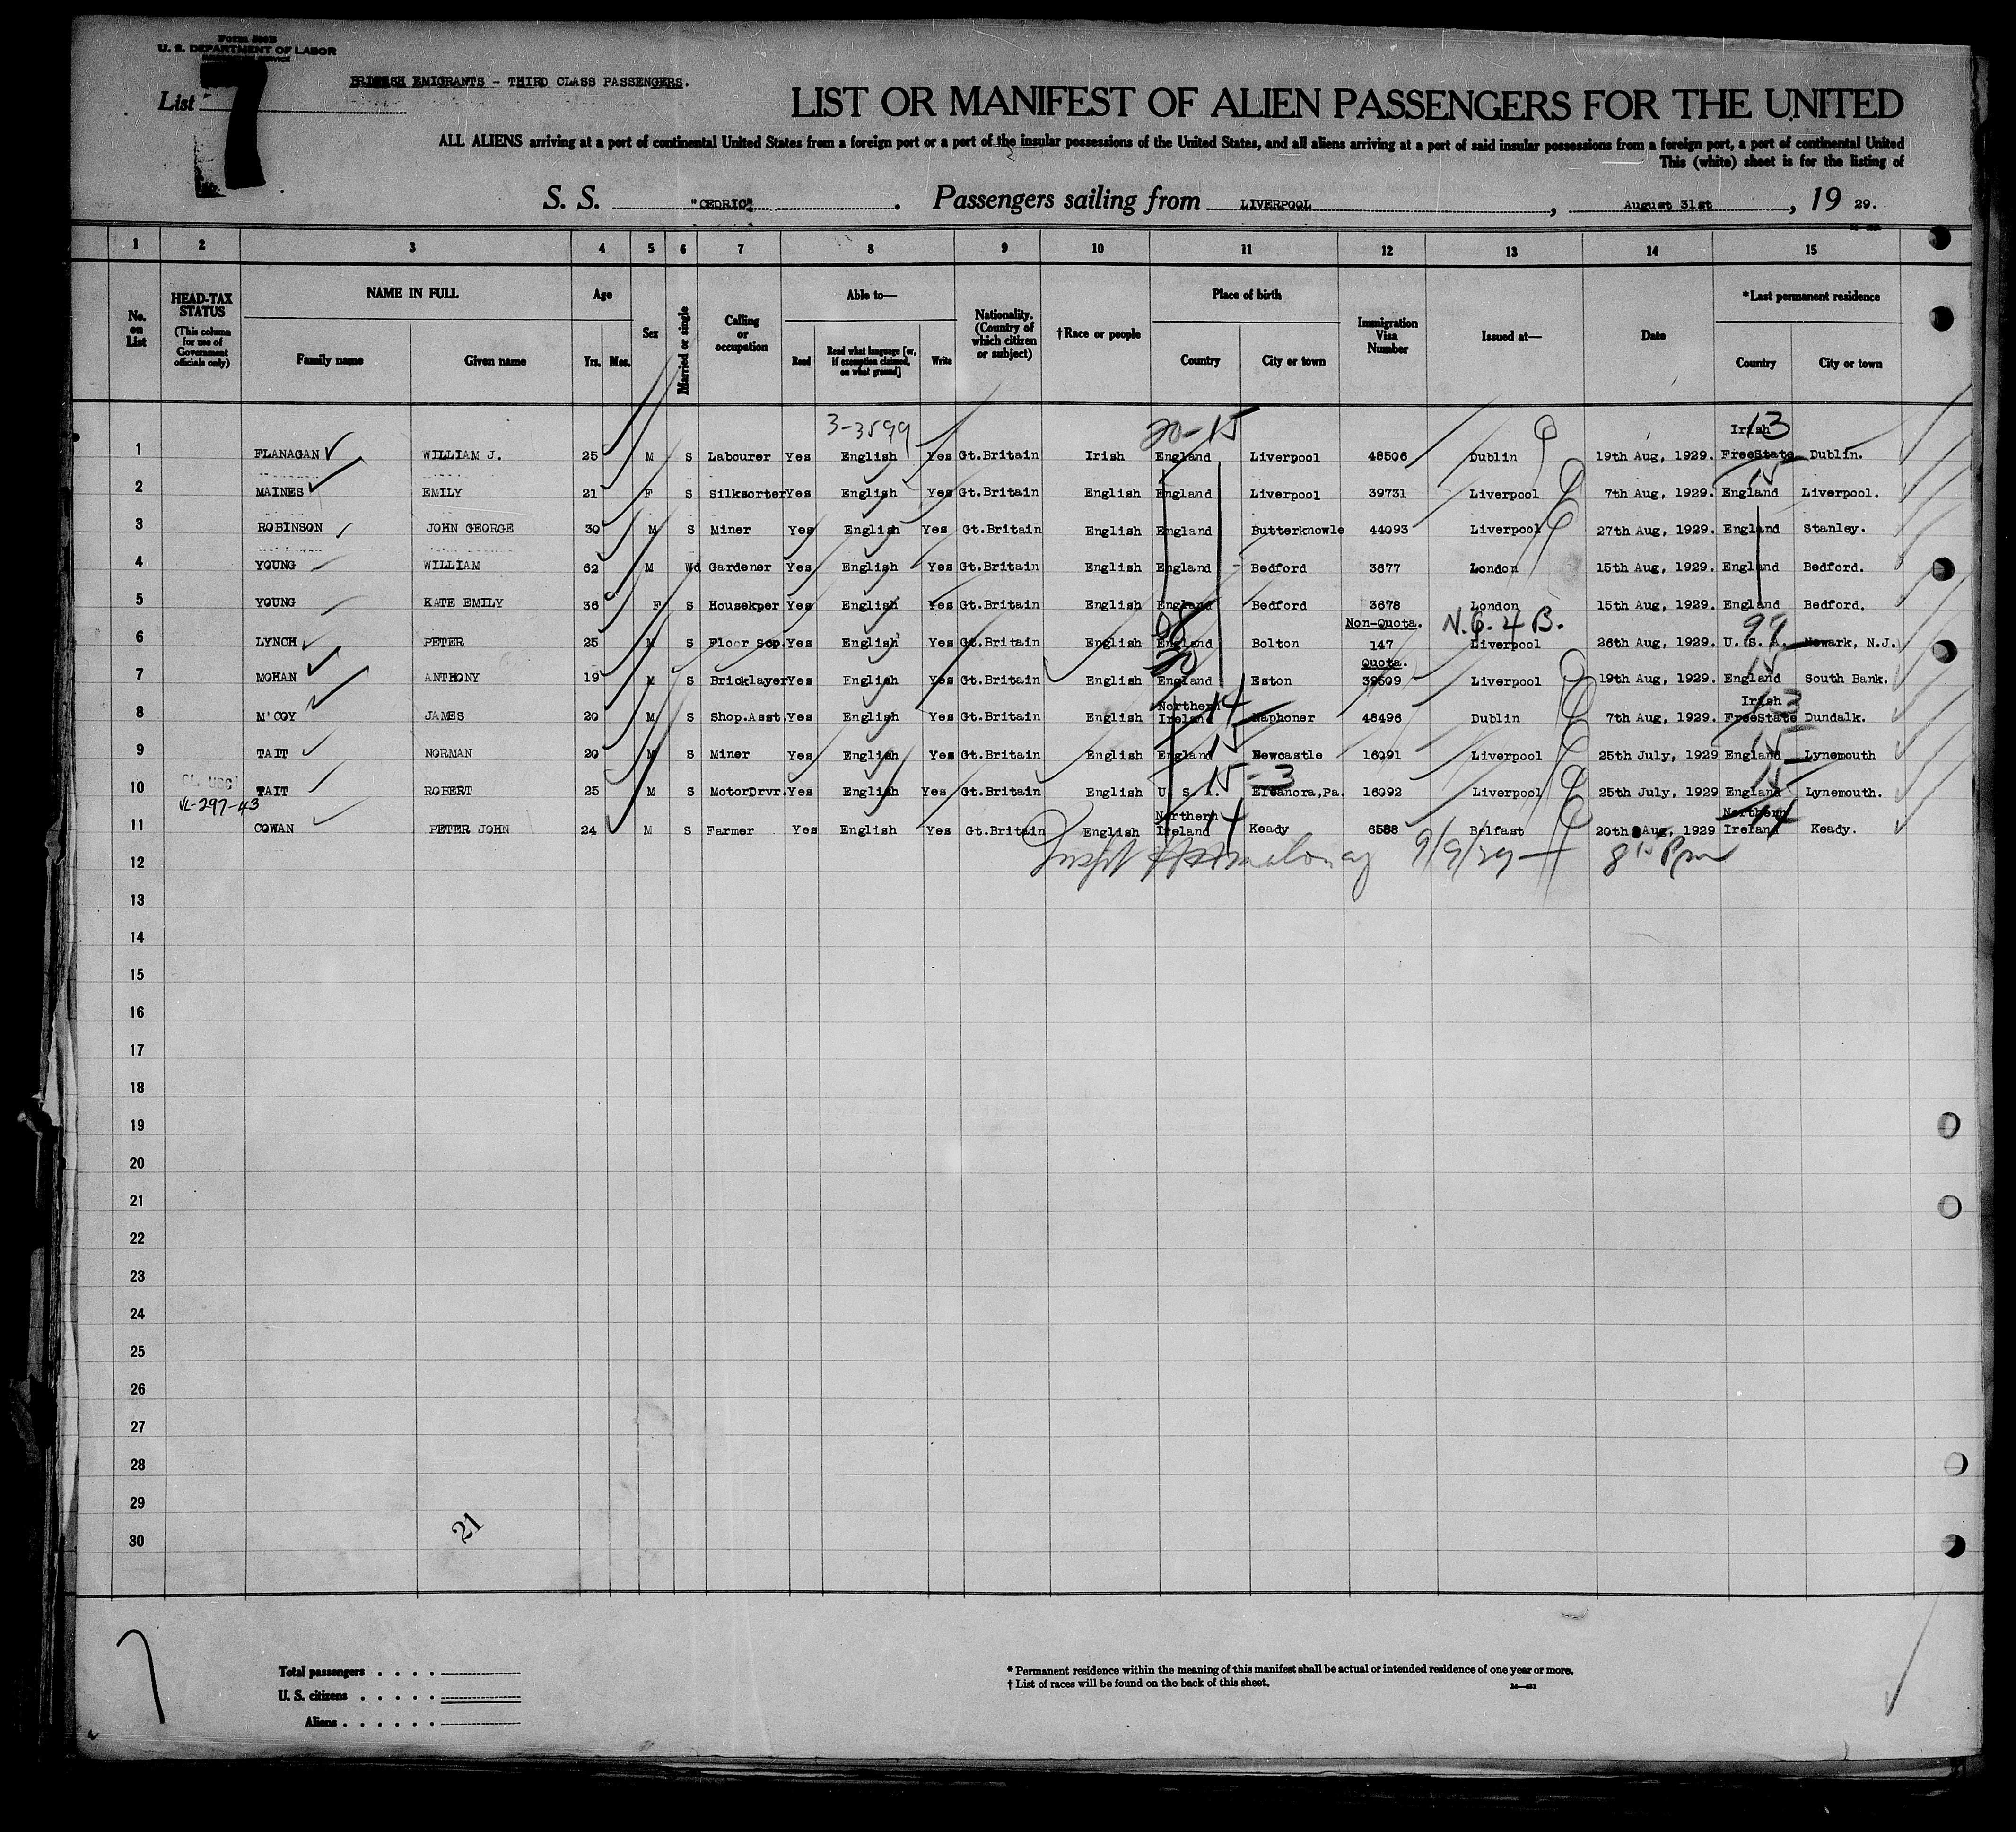 Form 500B
U. S. DEPARTMENT OF LABOR
List 7
BRITISH EMIGRANTS - THIRD CLASS PASSENGERS.
LIST OR MANIFEST OF ALIEN PASSENGERS FOR THE UNITED
ALL ALIENS arriving at a port of continental United States from a foreign port or a port of the insular possessions of the United States, and all aliens arriving at a port of said insular possessions from a foreign port, a port of continental United
This (white) sheet is for the listing of
S. S. "CEDRIC". Passengers sailing from LIVERPOOL, August 31st, 19 29.
1 2 3 4 5 6 7 8 9 10 11 12 13 14 15
No. on List HEAD-TAX STATUS (This column for use of Government officials only) NAME IN FULL Family name Given name Age Yrs. Mos. Sex Married or single Calling or occupation Able to— Read Read what language [or, if exemption claimed, on what ground] Write Nationality. (Country of which citizen or subject) †Race or people Place of birth Country City or town Immigration Visa Number Issued at— Date *Last permanent residence Country City or town
3-3599 20-15 13
1 FLANAGAN WILLIAM J. 25 M S Labourer Yes English Yes Gt.Britain Irish England Liverpool 48506 Dublin 19th Aug, 1929. Irish FreeState Dublin.
2 MAINES EMILY 21 F S Silksorter Yes English Yes Gt.Britain English England Liverpool 39731 Liverpool 7th Aug, 1929. England Liverpool. 15
3 ROBINSON JOHN GEORGE 30 M S Miner Yes English Yes Gt.Britain English England Butterknowle 44093 Liverpool 27th Aug, 1929. England Stanley.
4 YOUNG WILLIAM 62 M Wd Gardener Yes English Yes Gt.Britain English England Bedford 3677 London 15th Aug, 1929. England Bedford.
5 YOUNG KATE EMILY 36 F S Housekper Yes English Yes Gt.Britain English England Bedford 3678 London 15th Aug, 1929. England Bedford.
Non-Quota. N.Q. 4 B. 99
6 LYNCH PETER 25 M S Floor Sop. Yes English Yes Gt.Britain English England Bolton 147 Liverpool 26th Aug, 1929. U. S. A. Newark, N.J.
20 Quota. 15
7 MOHAN ANTHONY 19 M S Bricklayer Yes English Yes Gt.Britain English England Eston 39509 Liverpool 19th Aug, 1929. England South Bank.
14 13
8 M'COY JAMES 20 M S Shop.Asst. Yes English Yes Gt.Britain English Northern Ireland Raphoner 48496 Dublin 7th Aug, 1929. Irish FreeState Dundalk.
15 15
9 TAIT NORMAN 20 M S Miner Yes English Yes Gt.Britain English England Newcastle 16091 Liverpool 25th July, 1929 England Lynemouth
15-3 15
10 VL-297-43 TAIT ROBERT 25 M S MotorDrvr. Yes English Yes Gt.Britain English U. S. A. Eleanora,Pa. 16092 Liverpool 25th July, 1929 England Lynemouth.
14
11 COWAN PETER JOHN 24 M S Farmer Yes English Yes Gt.Britain English Northern Ireland Keady 6588 Belfast 20th Aug, 1929 Northern Ireland Keady.
12 9/9/29
13
14
15
16
17
18
19
20
21
22
23
24
25
26
27
28
29
30
21
Total passengers . . . .
U. S. citizens . . . . .
Aliens . . . . . .
* Permanent residence within the meaning of this manifest shall be actual or intended residence of one year or more.
† List of races will be found on the back of this sheet.